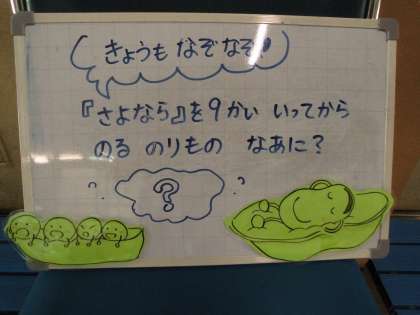 きょうも なぞなぞ!
『さよなら』を9かい いってから
のる のりもの なあに?
?
? ?